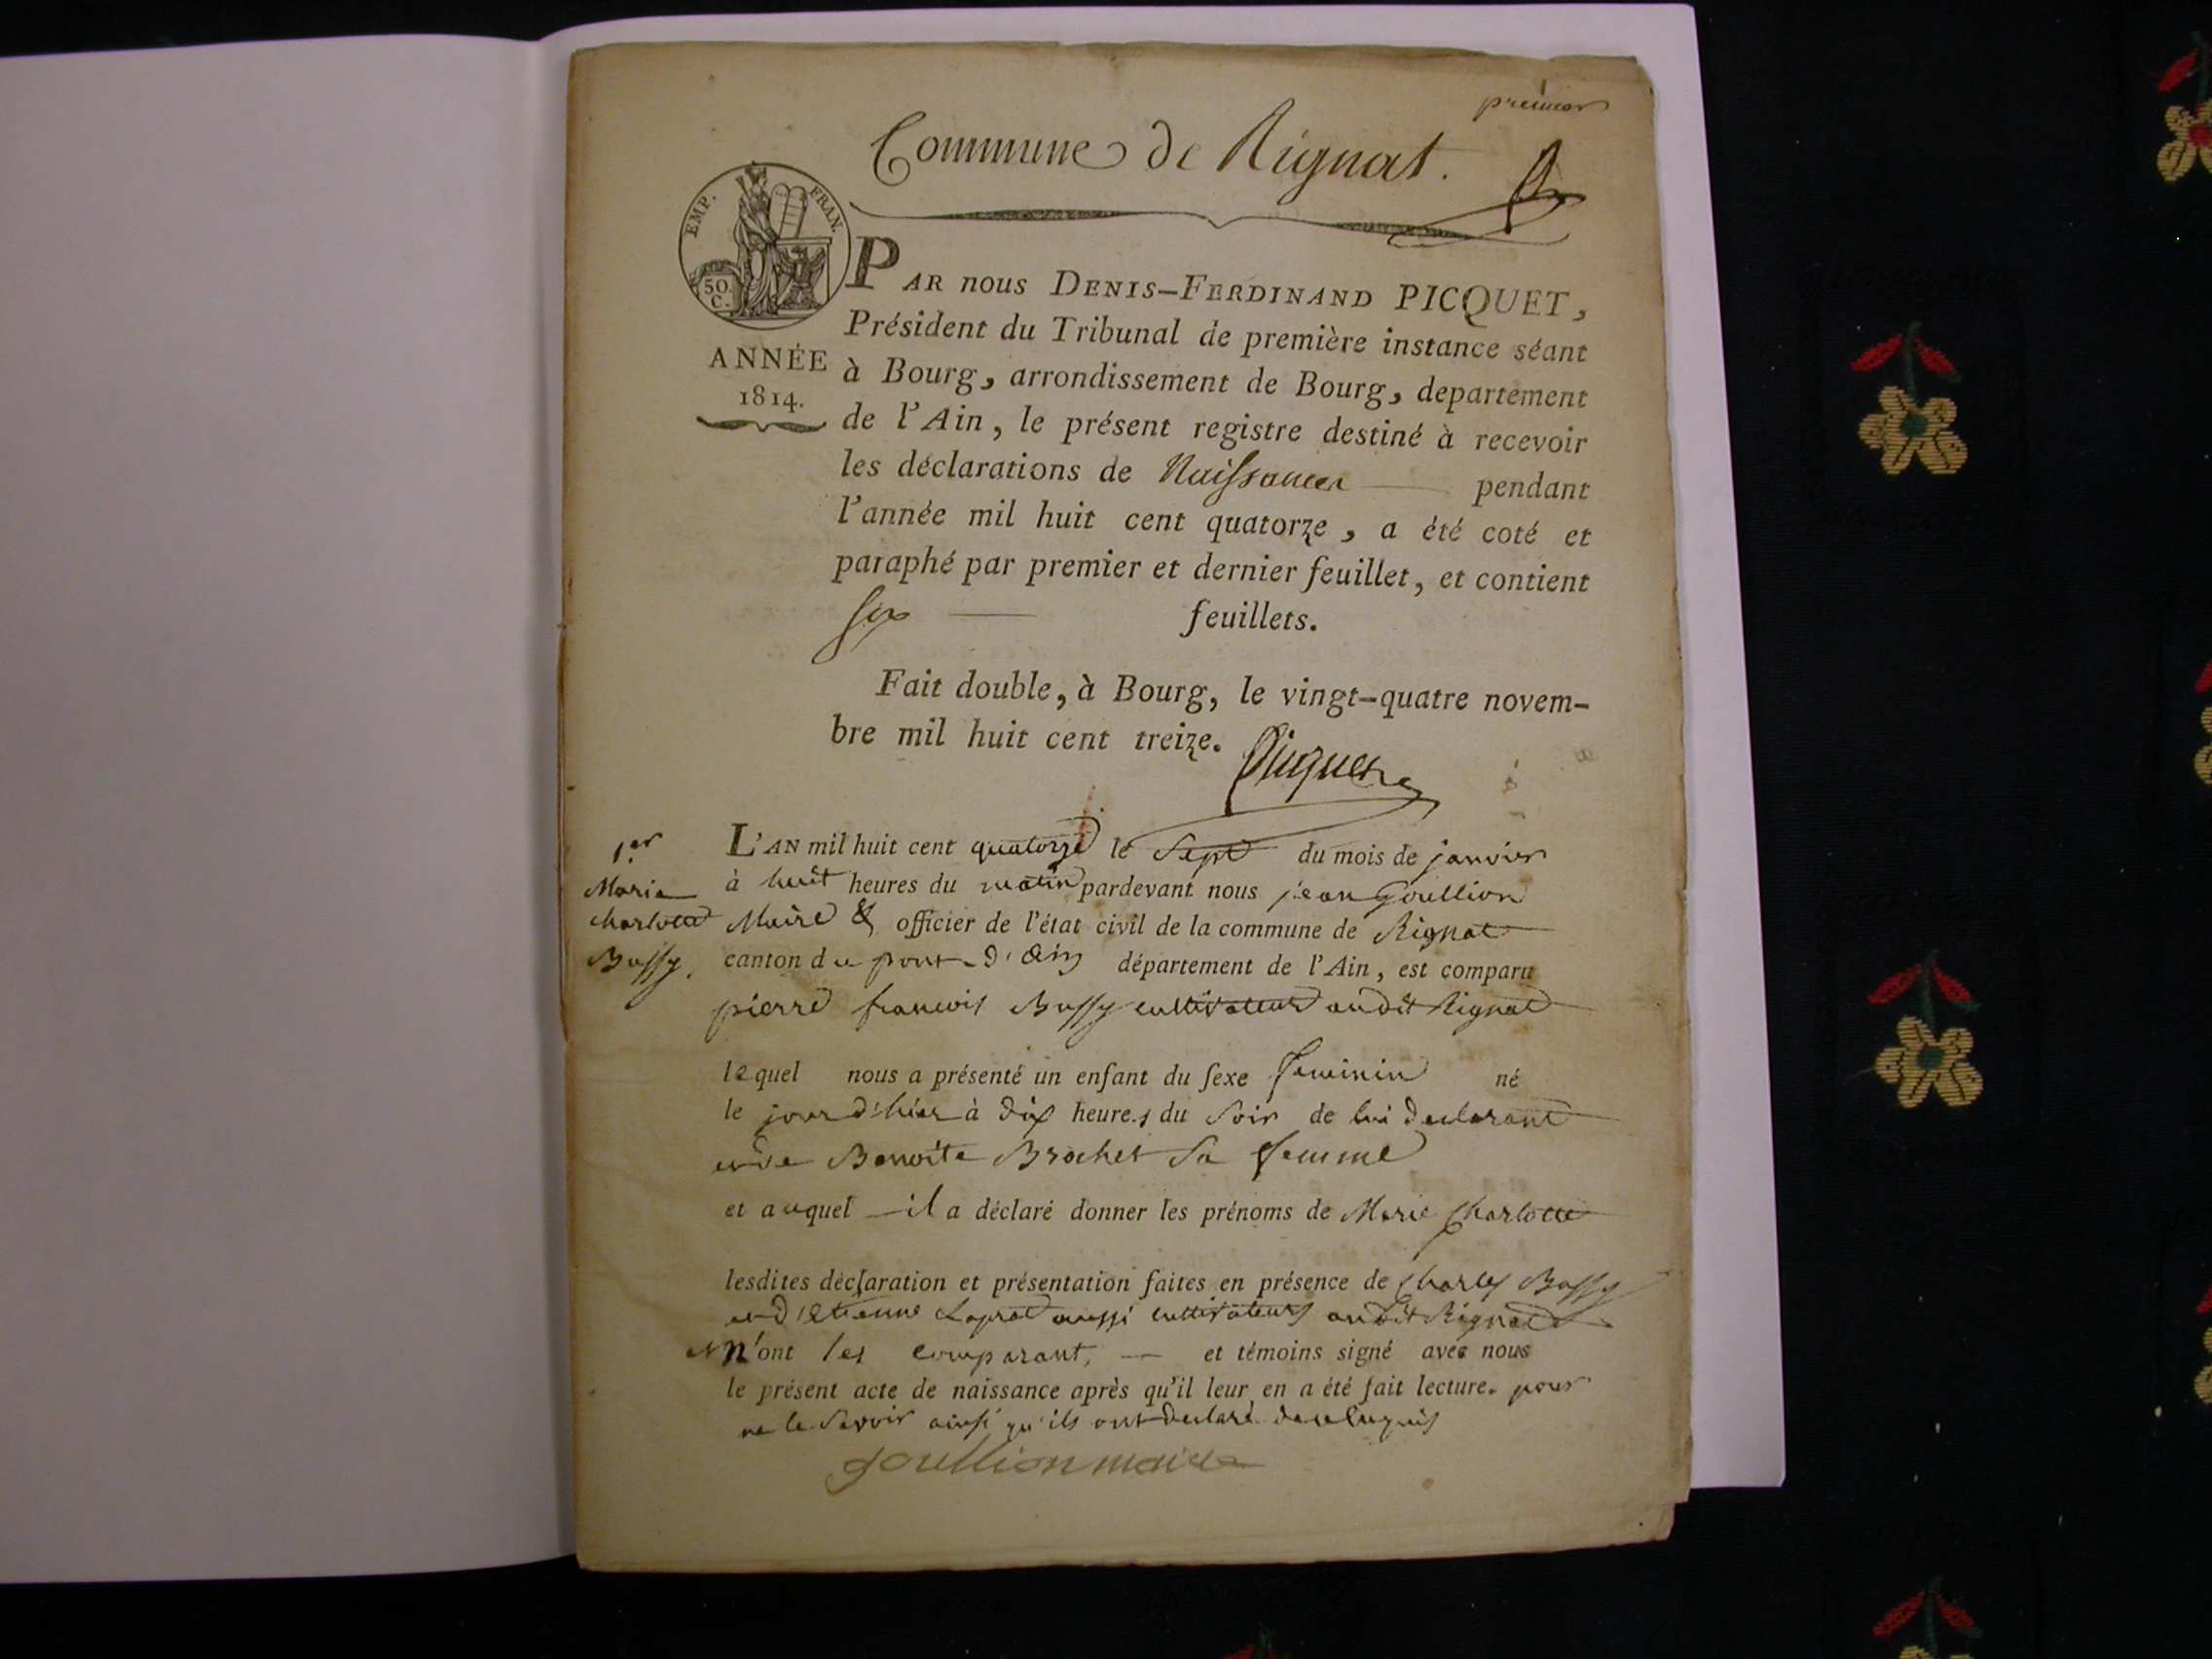 premier
Commune de Rignat.
EMP. FRAN.
50.
C.
ANNÉE
1814.
PAR nous DENIS-FERDINAND PICQUET,
Président du Tribunal de première instance séant
à Bourg, arrondissement de Bourg, departement
de l'Ain, le présent registre destiné à recevoir
les déclarations de Naissances pendant
l'année mil huit cent quatorze, a été coté et
paraphé par premier et dernier feuillet, et contient
six feuillets.
Fait double, à Bourg, le vingt-quatre novem-
bre mil huit cent treize.
Picquet
1.er
Marie
Charlotte
Bussy.
L'AN mil huit cent quatorze le Sept du mois de janvier
à huit heures du matin pardevant nous jean Goullion
Maire & officier de l'état civil de la commune de Rignat
canton du pont-d'ain département de l'Ain, est comparu
pierre francois Bussy cultivateur audit Rignat
lequel nous a présenté un enfant du sexe feminin né
le jour d'hier à dix heures du soir de lui declarant
et de Benoite Brochet sa femme
et auquel il a déclaré donner les prénoms de Marie Charlotte
lesdites déclaration et présentation faites en présence de Charles Bussy
et d'etienne Laprat aussi cultivateurs audit Rignat
et n'ont les comparant, et témoins signé avec nous
le présent acte de naissance après qu'il leur en a été fait lecture. pour
ne le savoir ainsi qu'ils ont declaré de ce enquis
goullion maire